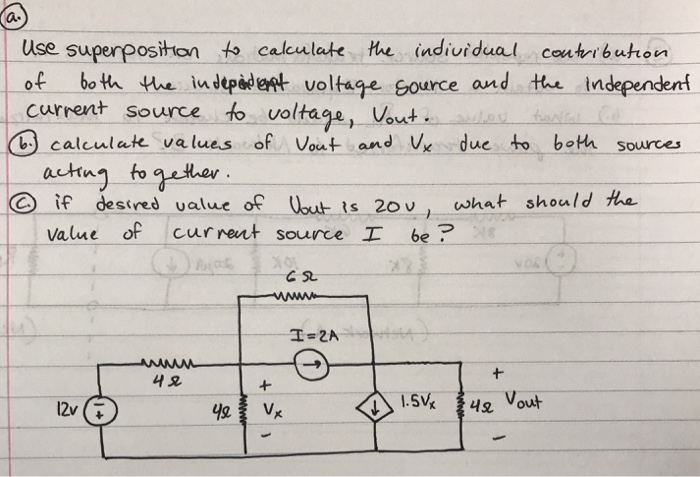 a.
Use superposition to calculate the individual contribution
of both the independent voltage source and the independent
current source to voltage, Vout.
b. calculate values of Vout and Vx due to both sources
acting together.
c. if desired value of Vout is 20v, what should the
value of current source I be?
6Ω
I=2A
4Ω
12v
- +
4Ω
+ Vx -
1.5Vx
4Ω
+ Vout -